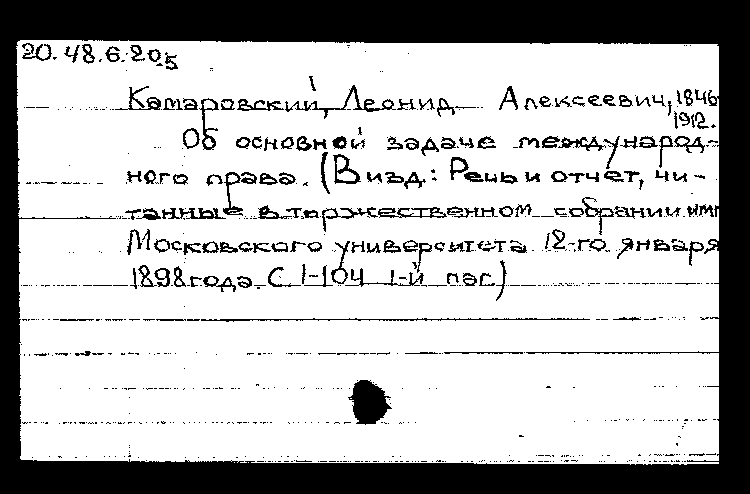 20.48.6.20.5
Камаровский, Леонид Алексеевич, 1846
1912.
Об основной задаче международ-
ного права. (В изд: Речь и отчет, чи-
танные в торжественном собрании имп
Московского университета 12-го января
1898 года. С. 1-104 1-й паг.)